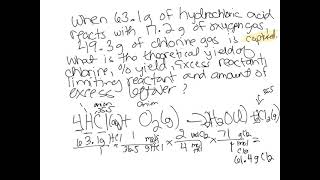 When 63.1g of hydrochloric acid
reacts with 17.2g of oxygen gas
49.3g of chlorine gas is captured.
What is the theoretical yield of
chlorine, % yield, excess reactant,
limiting reactant and amount of
excess leftover?
4HCl(aq) + O₂(g) → 2H₂O(l) + Cl₂(g)
63.1g HCl × 1 mol HCl / 36.5 g HCl × 2 mol Cl₂ / 4 mol HCl × 71 g Cl₂ / 1 mol Cl₂ =
61.4g Cl₂